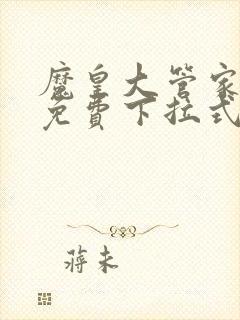 魔皇大管家
免費下拉式
蔣未